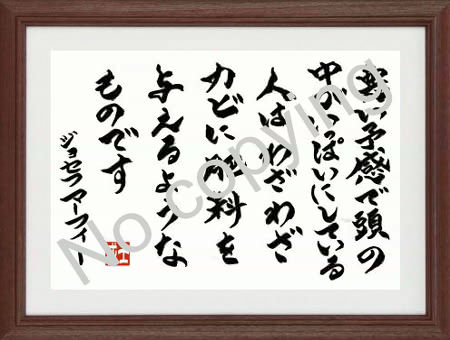 悪い予感で頭の
中がいっぱいにしている
人はわざわざ
カビに肥料を
与えるような
ものです
ジョセフマーフィー
No copying